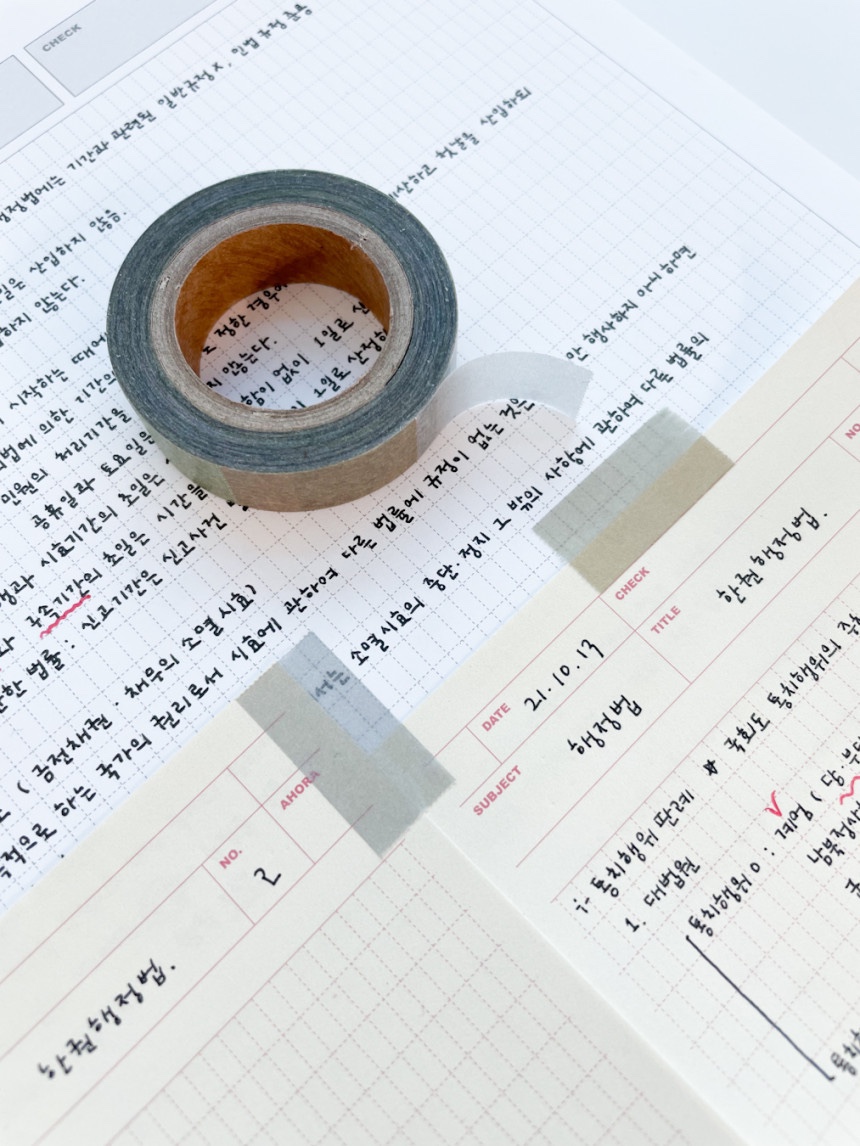 CHECK
행정법에는 기간과 관련된 일반규정 X, 민법 규정 준용
일은 산입하지 않음.
계산하고 첫날을 산입하되
하지 않는다.
시작하는 때에
정한 경우에
지 않는다.
의법에 의한 기간의
항이 없이 1일로 산
민원의 처리기간을
1일로 산정하
안 행사하지 아니하면
공휴일과 토요일은
시효기간의 초일은
구속기간의 초일은 시간을
다른 법률에 규정이 없는 것은
한 법률 : 신고기간은 신고사건
( 금전채권 · 채무의 소멸시효)
목적으로 하는 국가의 권리로서 시효에 관하여
서는 소멸시효의 중단·정지 그 밖의 사항에 관하여 다른 법률의
AHORA
NO. 2
한권행정법.
CHECK
NO.
DATE 21.10.19
TITLE 한권행정법.
SUBJECT 행정법
통치행위 판례 ☆ 국회도 통치행위의 주
1. 대법원
통치행위 O : 계엄 ( 당·부당
남북정상